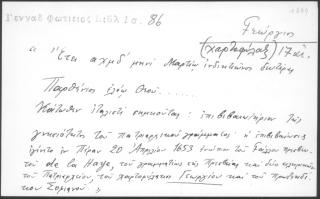 Γενναδ Φωτιειος Βιβλ 1α. 86
Γεώργιος
(χαρτοφύλαξ) 17 αι.
"Έτει αχμδ' μηνί Μαρτίω ἰνδικτιῶνος δευτέρας
Παρθένιος ἐλέω Θεοῦ.....
Κάτωθεν ἰταλιστί σημειοῦται: ἐπιβεβαιωτήριον τῆς
γνησιότητος τοῦ πατριαρχικοῦ γράμματος· ἡ ἐπιβεβαίωσις
ἐγένετο ἐν Πέραν 20 Ἀπριλίου 1653 ἐνώπιον τοῦ Γάλλου πρεσβευ-
τοῦ de la Haye, τοῦ γραμματέως τῆς Πρεσβείας καί δύο κληρικῶν
τοῦ Πατριαρχείου, τοῦ χαρτοφύλακος Γεωργίου καί τοῦ πρωτεκδί-
κου Σοφιανοῦ »